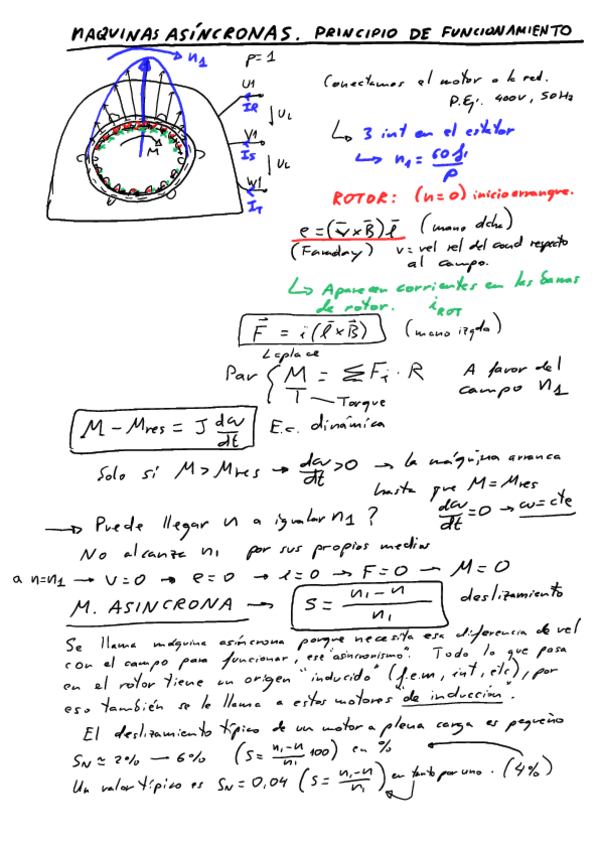 MAQUINAS ASÍNCRONAS. PRINCIPIO DE FUNCIONAMIENTO
n1
P=1
U1
IR
UL
V1
IS
UL
W1
IT
M
Conectamos el motor a la red.
P.Ej. 400V, 50Hz
↳ 3 int en el estator
↳ n1 = 60 f1 / P
ROTOR: (n=0) inicio arranque.
e = (v̄ x B̄) l̄ (mano dcha)
(Faraday) v = vel rel del cond respecto
al campo.
↳ Aparecen corrientes en las barras
de rotor. iROT
F̄ = i (l̄ x B̄) (mano izqda)
Laplace
Par { M/T = ΣFi · R A favor del
campo n1
Torque
M - Mres = J dω/dt Ec. dinámica
Solo si M > Mres → dω/dt > 0 → la máquina arranca
hasta que M = Mres
dω/dt = 0 → ω = cte
→ Puede llegar n a igualar n1 ?
No alcanza n1 por sus propios medios
a n=n1 → v=0 → e=0 → i=0 → F=0 → M=0
M. ASINCRONA → S = n1 - n / n1 deslizamiento
Se llama máquina asíncrona porque necesita esa diferencia de vel
con el campo para funcionar, ese "asincronismo". Todo lo que pasa
en el rotor tiene un origen "inducido" (f.e.m, int, etc), por
eso también se le llama a estos motores "de inducción".
El deslizamiento típico de un motor a plena carga es pequeño
SN ≃ 2% — 6% (S = n1-n / n1 100) en %
Un valor típico es SN = 0,04 (S = n1-n / n1) en tanto por uno. (4%)